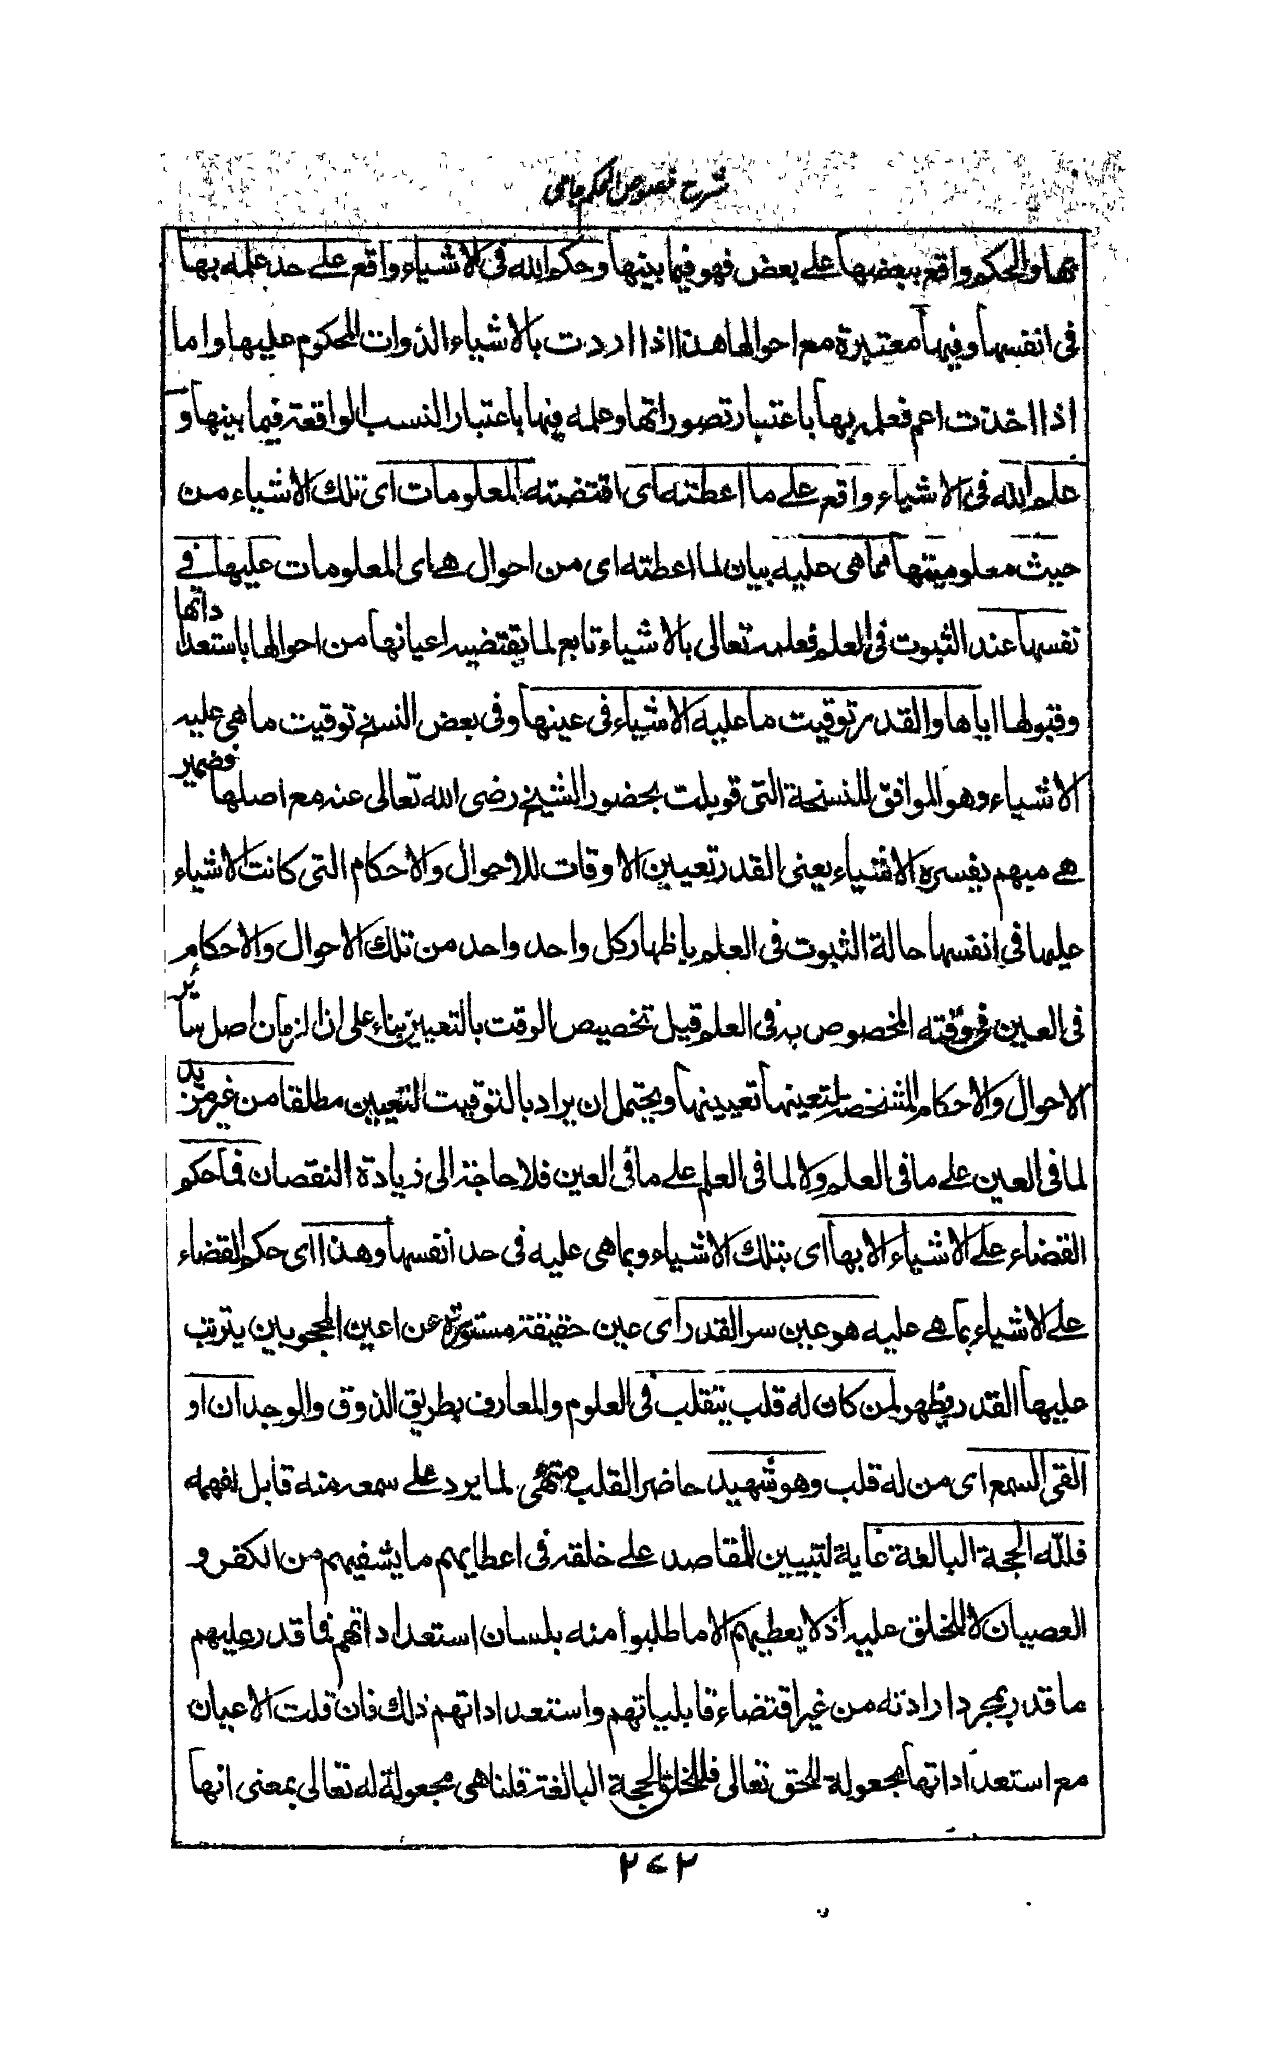 شرح فصوص الحكم جامى
بها والحكم واقع ببعضها على بعض فهو فيما بينها وحكم الله فى الاشياء واقع على حد علمه بها
فى انفسها وفيها معتبرة مع احوالها هذا اذا اردت بالاشياء الذوات المحكوم عليها واما
اذا اخذت اعم فعلمه بها باعتبار تصوراتها وعلمه فيها باعتبار النسب الواقعة فيما بينها و
علم الله فى الاشياء واقع على ما اعطته اى اقتضته المعلومات اى تلك الاشياء من
حيث معلوميتها مما هى عليه بيان لما اعطته اى من احوال هى اى المعلومات عليها فى
نفسها عند الثبوت فى العلم فعلمه تعالى بالاشياء تابع لما يقتضيه اعيانها من احوالها باستعداداتها
وقبولها اياها والقدر توقيت ما عليه الاشياء فى عينها وفى بعض النسخ توقيت ما هى عليه
الاشياء وهو الموافق للنسخة التى قوبلت بحضور الشيخ رضى الله تعالى عنه مع اصلها فضمير
هى مبهم يفسره الاشياء يعنى القدر تعيين الاوقات للاحوال والاحكام التى كانت الاشياء
عليها فى انفسها حالة الثبوت فى العلم باظهار كل واحد واحد من تلك الاحوال والاحكام
فى العين فى وقته المخصوص به فى العلم قيل تخصيص الوقت بالتعيين بناء على ان الزمان اصل سائر
الاحوال والاحكام المشخصة لتعينها تعيينها ويحتمل ان يراد بالتوقيت التعيين مطلقا من غير مزيد
لما فى العين على ما فى العلم ولا لما فى العلم على ما فى العين فلا حاجة الى زيادة النقصان فما حكم
القضاء على الاشياء الا بها اى بتلك الاشياء وبما هى عليه فى حد انفسها وهذا اى حكم القضاء
على الاشياء بما هى عليه هو عين سر القدر اى عين حقيقة مستورة عن اعين المحجوبين يترتب
عليها القدر يظهر لمن كان له قلب يتقلب فى العلوم والمعارف بطريق الذوق والوجدان او
القى السمع اى من له قلب وهو شهيد حاضر القلب متهئ لما يرد على سمعه منه قابل لفهمه
فلله الحجة البالغة غاية لتبيين المقاصد على خلقه فى اعطايهم ما يشفيهم من الكفر و
العصيان لا للخلق عليه اذ لا يعطيهم الا ما طلبوا منه بلسان استعداداتهم فما قدر عليهم
ما قدر بمجرد ارادته من غير اقتضاء قابلياتهم واستعداداتهم ذلك فان قلت الاعيان
مع استعداداتها مجعولة للحق تعالى فللخلق الحجة البالغة قلنا هى مجعولة له تعالى بمعنى انها
٢٧٢